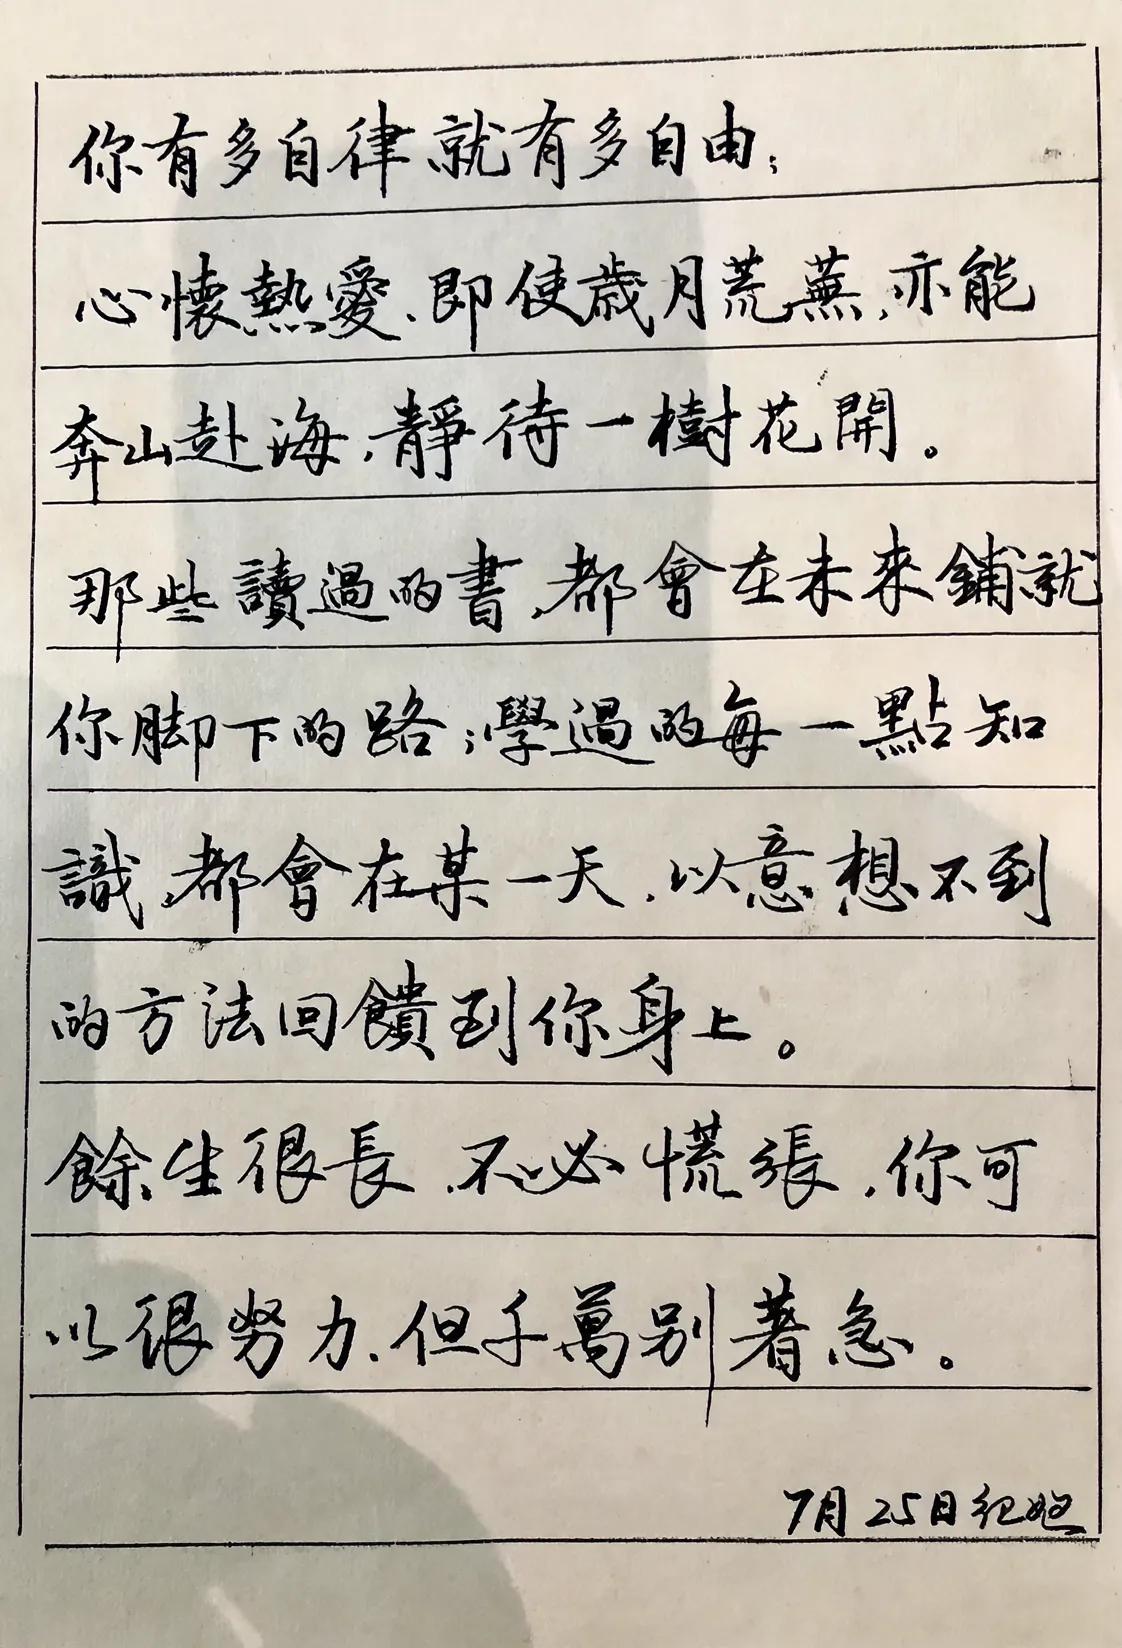 你有多自律就有多自由；
心懷熱愛，即使歲月荒蕪，亦能
奔山赴海，靜待一樹花開。
那些讀過的書，都會在未來鋪就
你脚下的路；學過的每一點知
識，都會在某一天，以意想不到
的方法回饋到你身上。
餘生很長，不必慌張，你可
以很努力，但千萬别著急。
7月25日